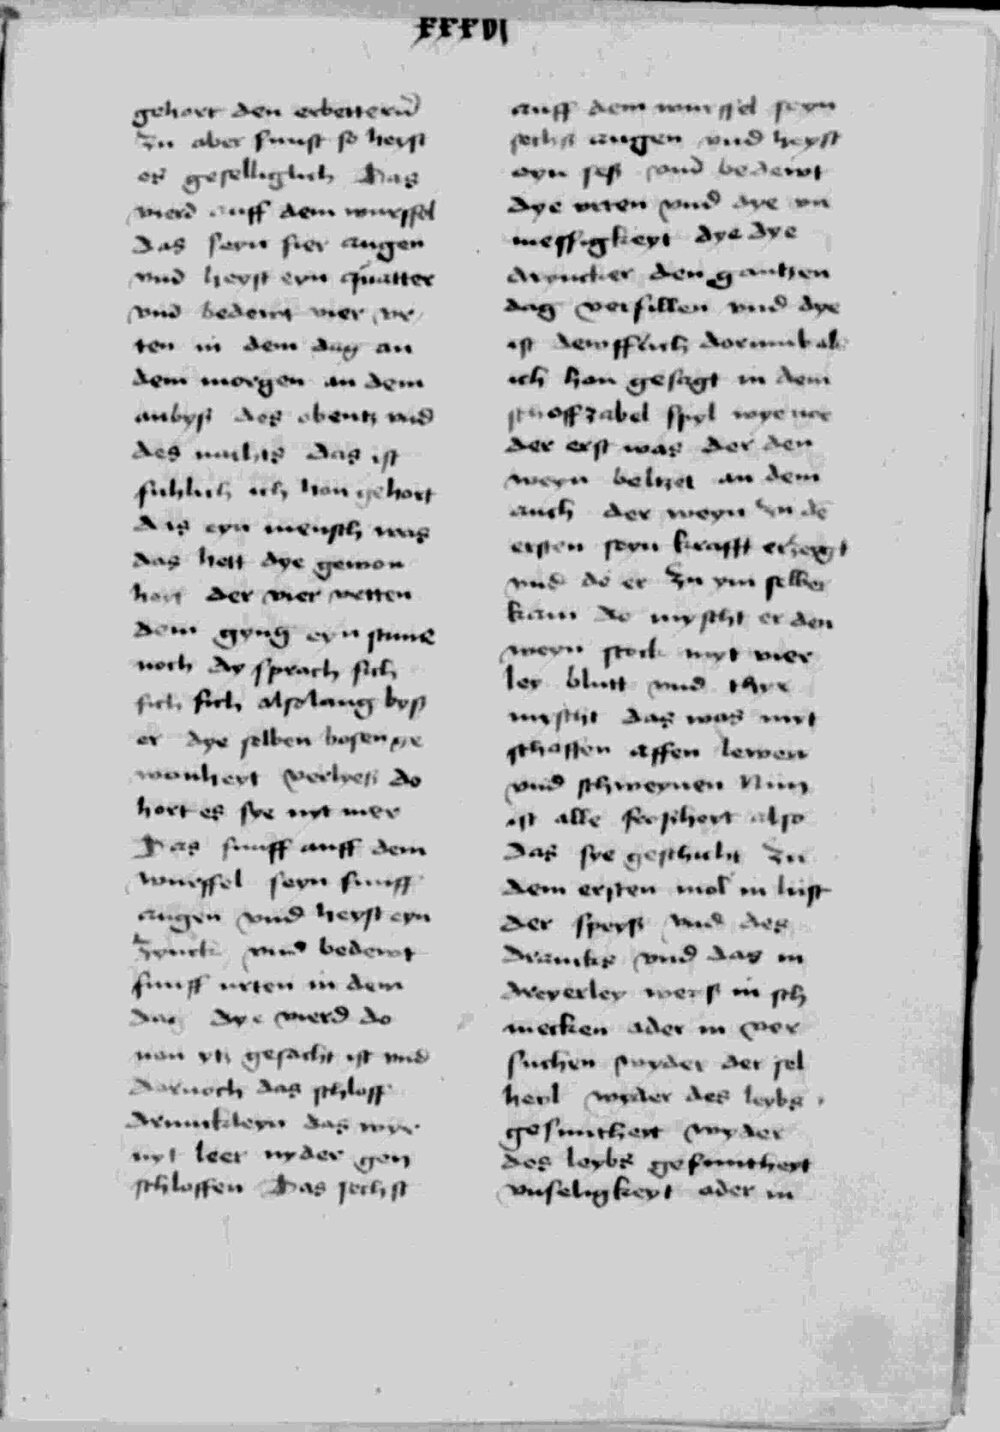 xxxvi
gehort den erbettern
zu aber funst so heyst
es geselliglich Das
vierd auff dem wurffel
das seyn fier augen
vnd heyst eyn quatter
vnd bedewt vier vr
ten in dem dag an
dem morgen an dem
anbyß des obentz vnd
des nachts das ist
ich hon gehort
das eyn mensch was
das hett dye gewon
heyt der vier vrtten
dem gyng eyn stime
noch dy sprach sich
sich sich also lang byß
er dye selben bosen ge
wonheyt verlyeß do
hort es sye nyt mer
Das funff auff dem
wurffel seyn funff
augen vnd heyst eyn
zynck vnd bedewt
funff vrten in dem
dag dye vierd do
von ytz gesacht ist vnd
dornoch das schloff
drunckleyn das wyr
nyt leer nyder gen
schloffen Das sechst
auff dem wurffel seyn
sechs augen vnd heyst
eyn seß vnd bedewt
dye vrten vnd dye vn
messigkeyt dye dye
dryncker den gantzen
dag verfillen vnd dye
ist dewfflich dorumb als
ich hon gesagt in dem
schoffzabel spyl wye noe
der erst was der den
weyn beltzet an dem
auch der weyn zu de
ersten seyn krafft erzeygt
vnd do er zu ym selber
kam do myscht er den
weyn stock myt vier
ley blutt vnd thyr
myscht das was myt
schoffen affen lewen
vnd schweynen Nun
ist alle also
das sye geschicht zu
dem ersten mol in lust
der speyß vnd des
drancks vnd das in
dreyerley weyß in sch
mecken ader in ver
suchen wyder der sel
heyl wyder des leybs
gesuntheyt wyder
des leybs gesuntheyt
vnseligkeyt oder in